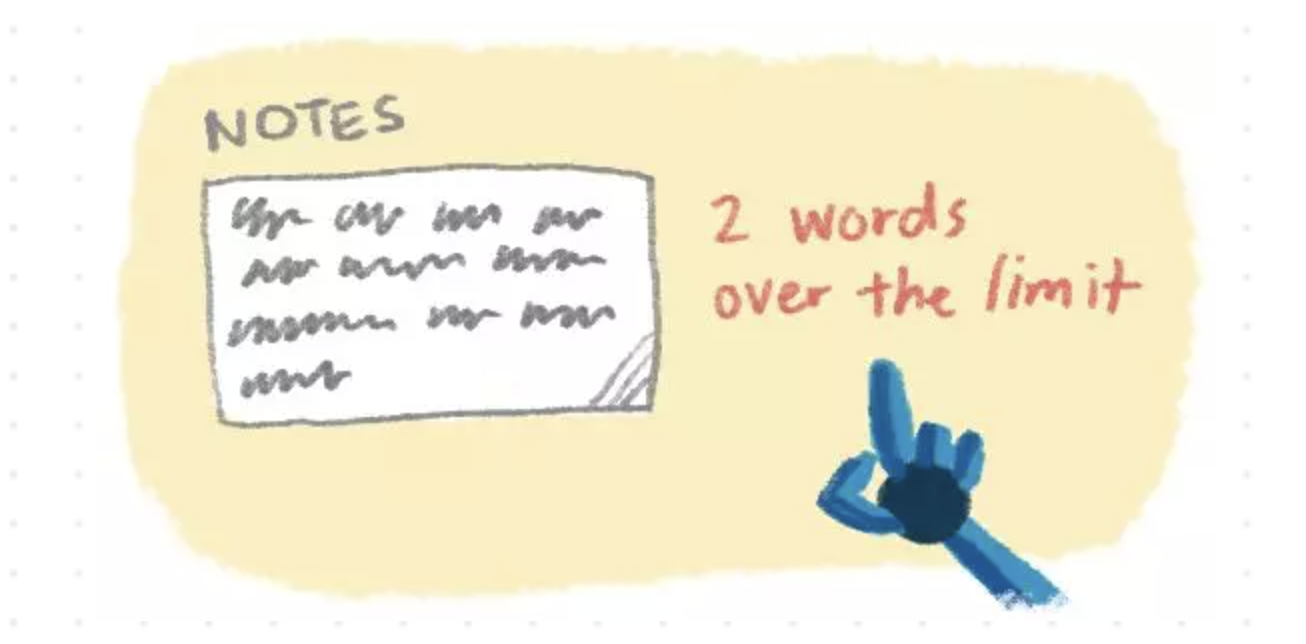 NOTES
2 words
over the limit